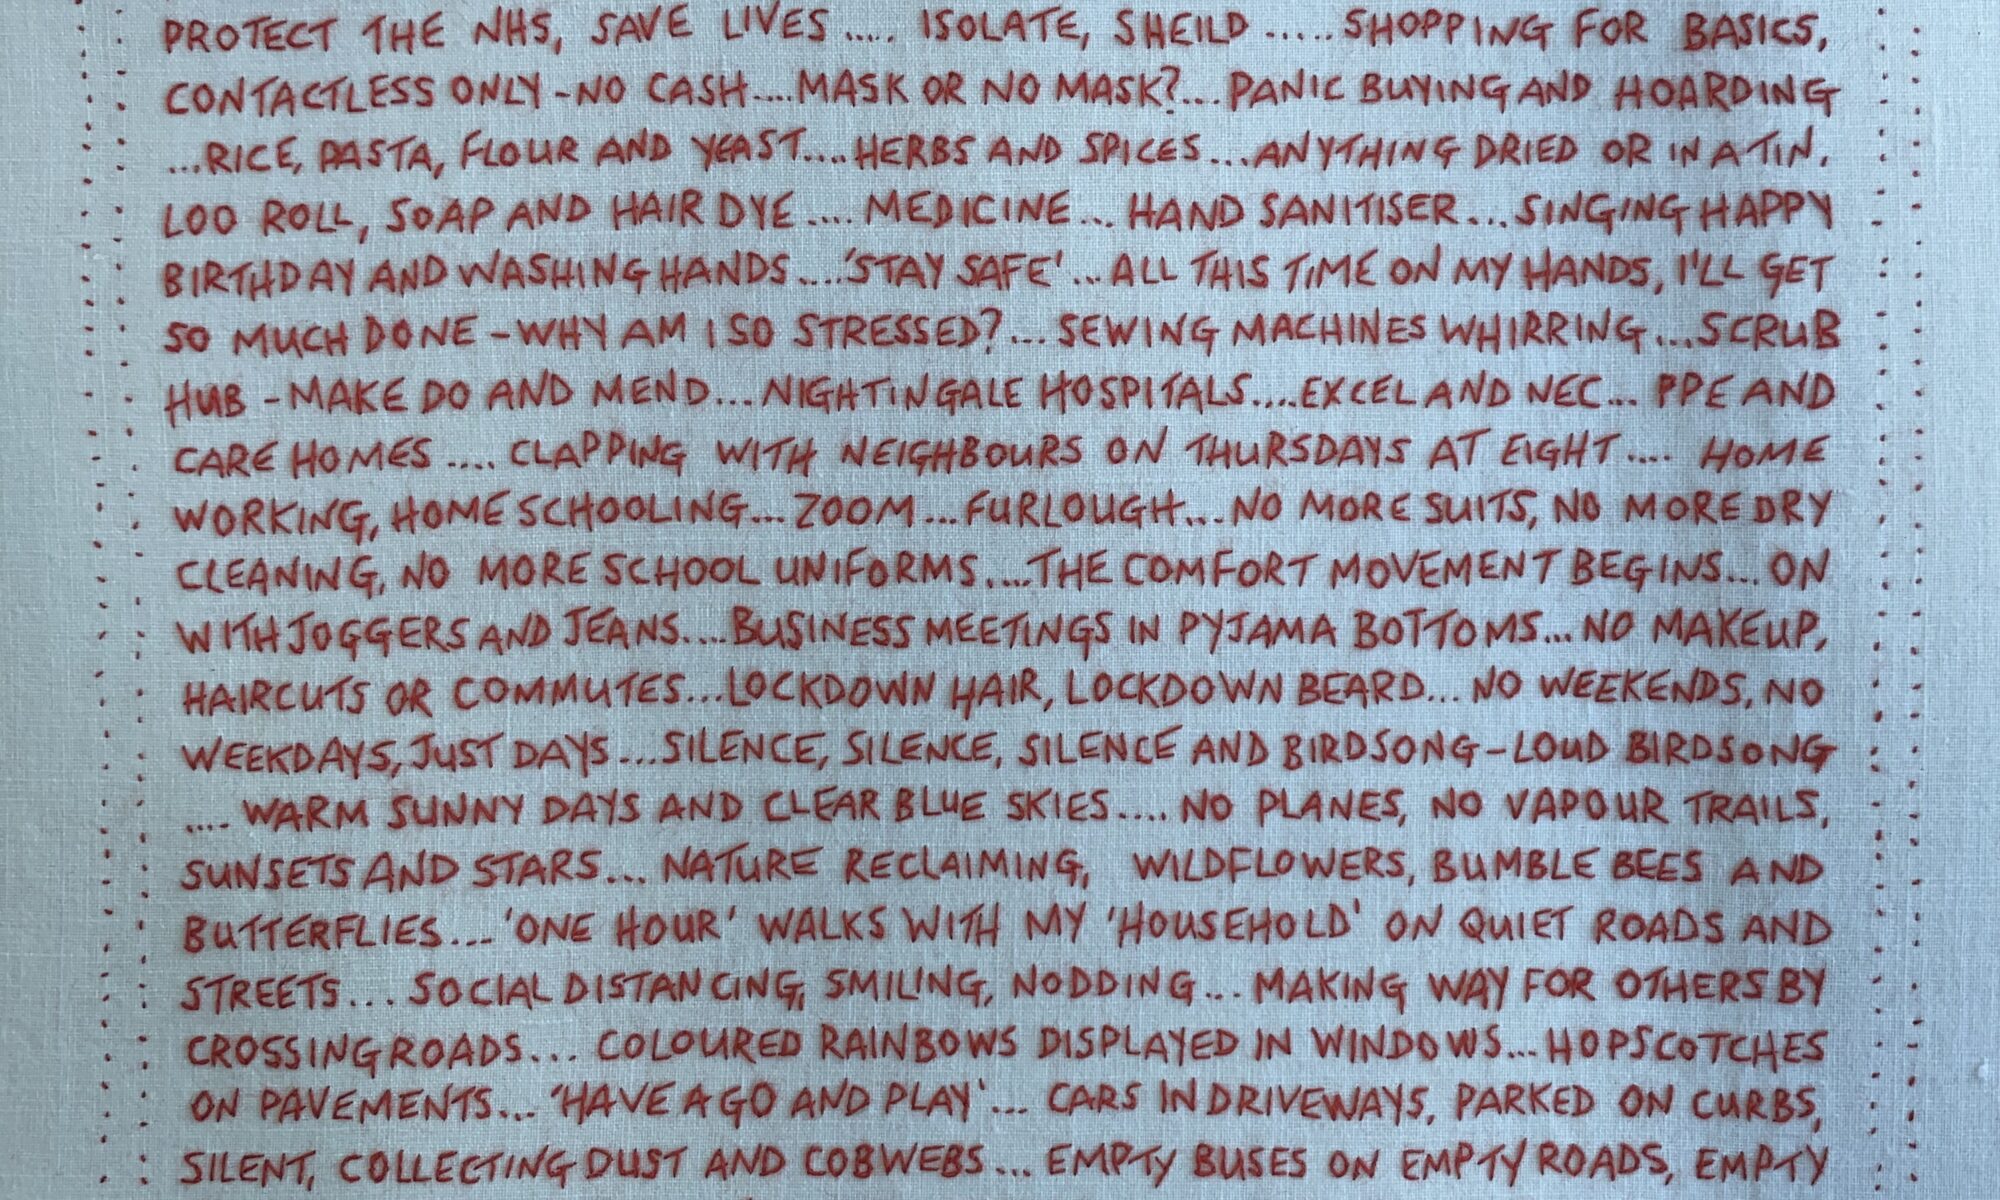 PROTECT THE NHS, SAVE LIVES..... ISOLATE, SHEILD.....SHOPPING FOR BASICS,
CONTACTLESS ONLY-NO CASH....MASK OR NO MASK?...PANIC BUYING AND HOARDING
...RICE, PASTA, FLOUR AND YEAST....HERBS AND SPICES...ANYTHING DRIED OR IN A TIN.
LOO ROLL, SOAP AND HAIR DYE....MEDICINE...HAND SANITISER...SINGING HAPPY
BIRTHDAY AND WASHING HANDS....'STAY SAFE'...ALL THIS TIME ON MY HANDS, I'LL GET
SO MUCH DONE-WHY AM I SO STRESSED?...SEWING MACHINES WHIRRING...SCRUB
HUB-MAKE DO AND MEND...NIGHTINGALE HOSPITALS....EXCEL AND NEC...PPE AND
CARE HOMES....CLAPPING WITH NEIGHBOURS ON THURSDAYS AT EIGHT....HOME
WORKING, HOME SCHOOLING...ZOOM...FURLOUGH...NO MORE SUITS, NO MORE DRY
CLEANING, NO MORE SCHOOL UNIFORMS....THE COMFORT MOVEMENT BEGINS...ON
WITH JOGGERS AND JEANS....BUSINESS MEETINGS IN PYJAMA BOTTOMS...NO MAKEUP,
HAIRCUTS OR COMMUTES...LOCKDOWN HAIR, LOCKDOWN BEARD...NO WEEKENDS, NO
WEEKDAYS, JUST DAYS...SILENCE, SILENCE, SILENCE AND BIRDSONG-LOUD BIRDSONG
....WARM SUNNY DAYS AND CLEAR BLUE SKIES....NO PLANES, NO VAPOUR TRAILS,
SUNSETS AND STARS...NATURE RECLAIMING, WILDFLOWERS, BUMBLE BEES AND
BUTTERFLIES...'ONE HOUR' WALKS WITH MY 'HOUSEHOLD' ON QUIET ROADS AND
STREETS...SOCIAL DISTANCING, SMILING, NODDING...MAKING WAY FOR OTHERS BY
CROSSING ROADS...COLOURED RAINBOWS DISPLAYED IN WINDOWS...HOPSCOTCHES
ON PAVEMENTS...'HAVE A GO AND PLAY'...CARS IN DRIVEWAYS, PARKED ON CURBS,
SILENT, COLLECTING DUST AND COBWEBS...EMPTY BUSES ON EMPTY ROADS, EMPTY